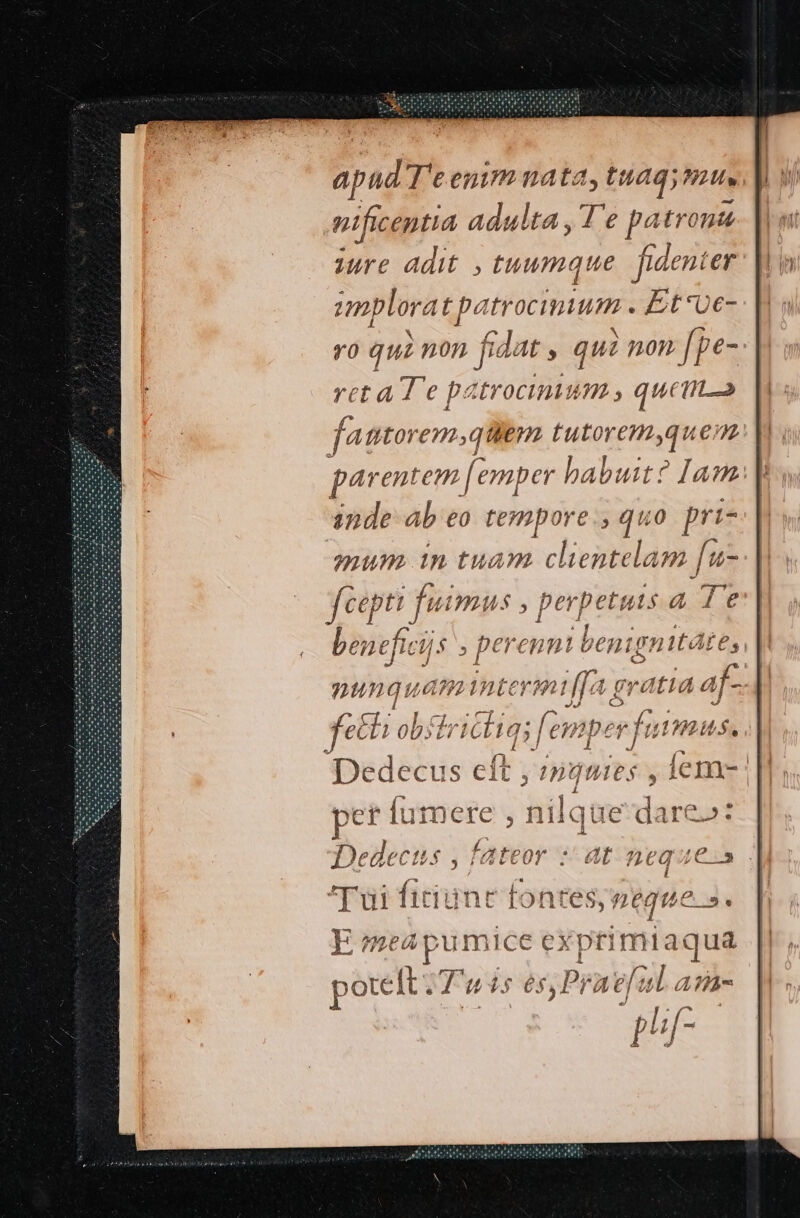 apud Te enim nata, tuaq; mu-
nificentia adulta, Te patronū
iure adit , tuumque fidenter
implorat patrocinium. Et ve-
ro quì non fidat , quì non ſpe-
ret a Te patrocinium , quem
fautorem,quem tutorem,quem
parentem ſemper habuit? Iam
inde ab eo tempore , quo pri-
mum in tuam clientelam ſu-
ſcepti fuimus , perpetuis a Te
beneficijs , perenni benignitate,
nunquam intermiſſa gratia af-
fecti obſtrictiq; ſemper fuimus.
Dedecus eſt , inquies , ſem-
per ſumere , nilque dare:
Dedecus , fateor : at neque
Tui ſitiunt fontes, neque
E mea pumice exprimi aqua
poteſt : Tu is es, Praeſul am-
pliſ-